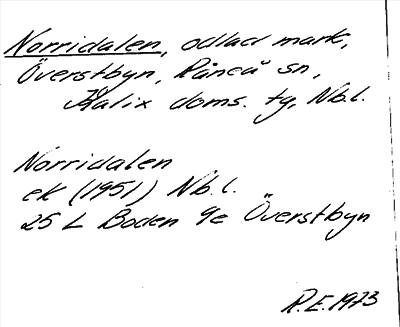 Norridalen, odlad mark,
Överstbyn, Råneå sn,
Kalix doms. tg, Nb.l.
Norridalen
ek (1951) Nb.l.
25 L Boden 9e Överstbyn
R.E. 1973